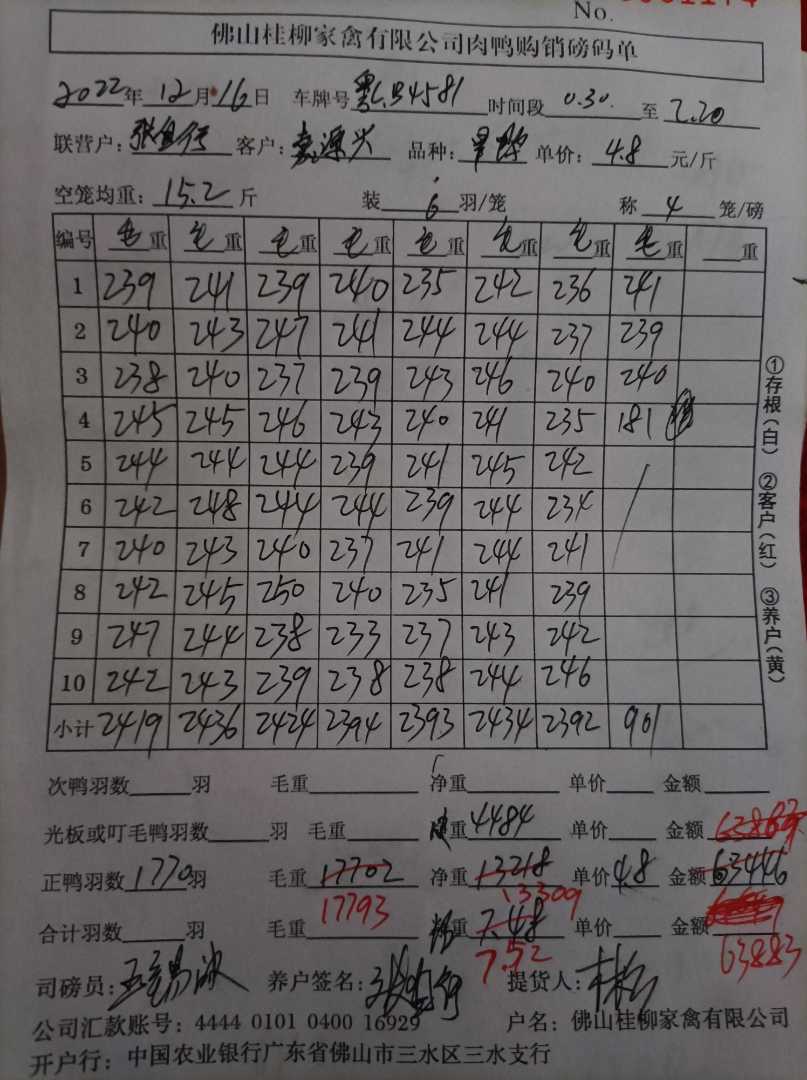 No.
佛山桂柳家禽有限公司肉鸭购销磅码单
2022年 12月16日 车牌号 粤L34581 时间段 0.30. 至 2.20
联营户: 客户: 源兴 品种: 单价: 4.8 元/斤
空笼均重: 15.2 斤 装 6 羽/笼 称 4 笼/磅
编号 毛重 毛重 毛重 毛重 毛重 毛重 毛重 毛重 重
1 239 241 239 240 235 242 236 241
2 240 243 247 241 244 244 237 239
3 238 240 237 239 243 246 240 240
4 245 245 246 243 240 241 235 181
5 244 244 244 239 241 245 242
6 242 248 244 244 239 244 234
7 240 243 240 237 241 244 241
8 242 245 250 240 235 241 239
9 247 244 238 233 237 243 242
10 242 243 239 238 238 244 246
小计 2419 2436 2424 2394 2393 2434 2392 901
①存根(白) ②客户(红) ③养户(黄)
次鸭羽数 羽 毛重 净重 单价 金额
光板或叮毛鸭羽数 羽 毛重 重 4484 单价 金额
正鸭羽数 1770 羽 毛重 17702 净重 13218 单价 4.8 金额 63446
17793 13309
合计羽数 羽 毛重 重 7.48 单价 金额
7.52 63883
司磅员: 养户签名: 提货人:
公司汇款账号: 4444 0101 0400 16929 户名: 佛山桂柳家禽有限公司
开户行: 中国农业银行广东省佛山市三水区三水支行